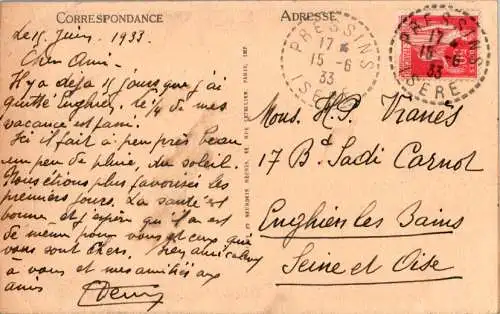 CORRESPONDANCE
Le 15 Juin 1933.
Cher Ami.
Il y a déjà 15 jours que j'ai
quitté Enghien, le ¼ de mes
vacances est passé.
Ici il fait à peu près beau
un peu de pluie, du soleil.
Nous étions plus favorisés les
premiers jours. La santé est
bonne et j'espère qu'il en est
de même pour vous et ceux qui
vous sont chers. Bien amicalement
à vous et mes amitiés aux
amis
ADRESSE
PRESSINS
17 *
15 - 6
33
ISERE
PRESSINS
17 *
15 - 6
33
ISERE
Mons. H. P.
17 Bd Sadi Carnot
Enghien les Bains
Seine et Oise